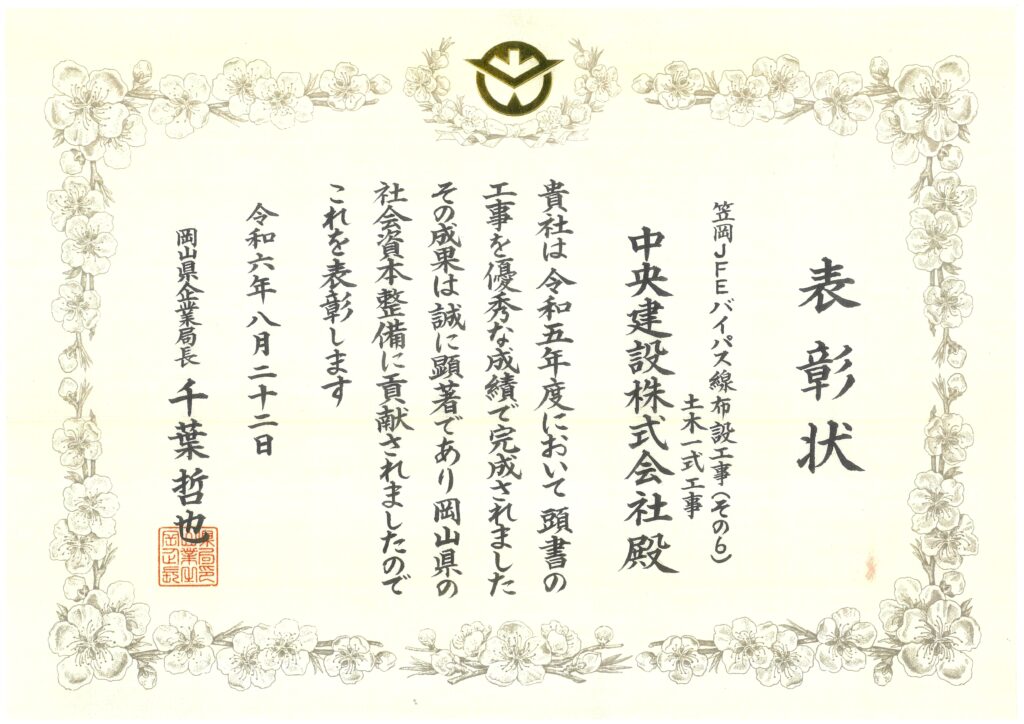 表彰状
笠岡JFEバイパス線布設工事(その6)
土木一式工事
中央建設株式会社殿
貴社は令和五年度において頭書の
工事を優秀な成績で完成されました
その成果は誠に顕著であり岡山県の
社会資本整備に貢献されましたので
これを表彰します
令和六年八月二十二日
岡山県企業局長 千葉哲也